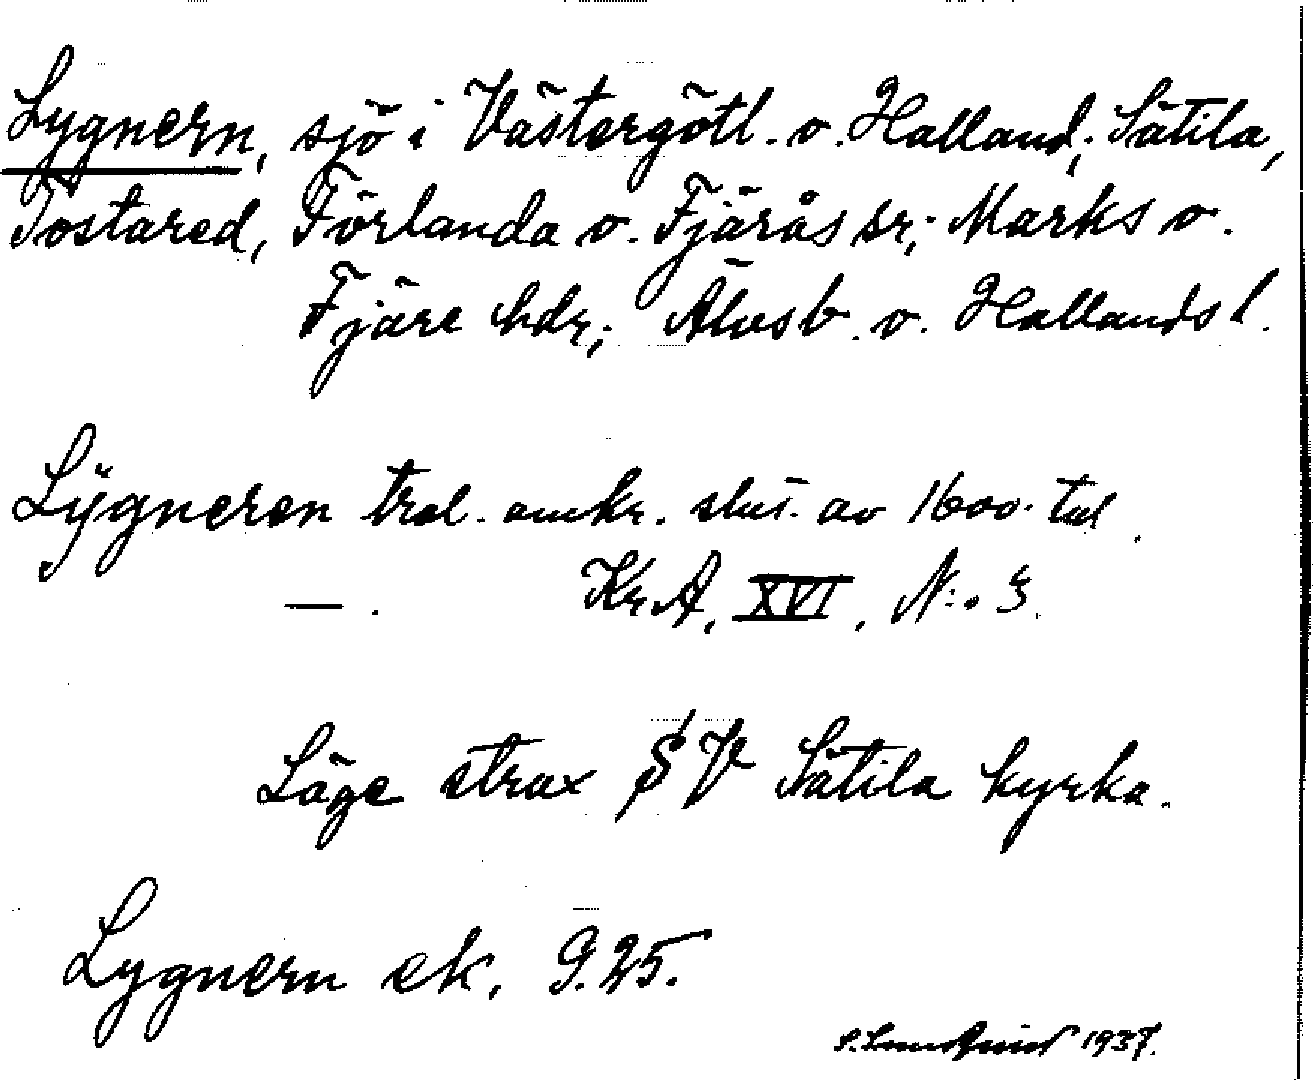 Lygnern, sjö i Västergötl. o. Halland; Sätila,
Tostared, Förlanda o. Fjärås sr; Marks o.
Fjäre hdr; Älvsb. o. Hallands l.
Lÿgneren trol. omkr. slut. av 1600-tal.
— . KrA, XVI, N:o 3.
Läge strax S V Sätila kyrka.
Lygnern ek. 9.25.
S. Lundqvist 1937.